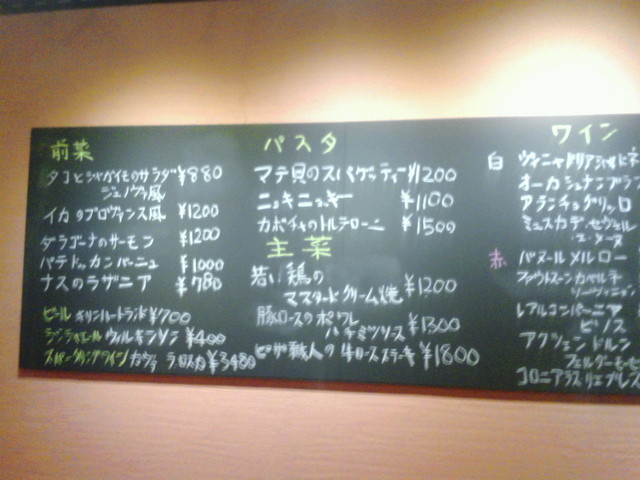 前菜
タコとジャガイモのサラダ ¥880
ジェノヴァ風
イカのプロヴァンス風 ¥1200
タラゴーナのサーモン ¥1200
パテドゥカンパーニュ ¥1000
ナスのラザニア ¥780
ビール キリンハートランド ¥700
ジンジャエール ウィルキンソン ¥400
スパークリングワイン カヴァ ラ ロスカ ¥3480
パスタ
マテ貝のスパゲッティーニ ¥1200
ニョキニョッキー ¥1100
カボチャのトルテローニ ¥1500
主菜
若い鶏の
マスタードクリーム焼 ¥1200
豚ロースのポワレ
ハチミツソース ¥1300
ピザ職人の牛ロースステーキ ¥1800
ワイン
白
オーカ シュナンブラン
アランチョ グリッロ
ミュスカデ・セヴェル
・エ・メーヌ
赤 パヌール メルロー
レアルコンパーニア
ピノス
アクツェン ドルン
コロニアラス・リェブレス